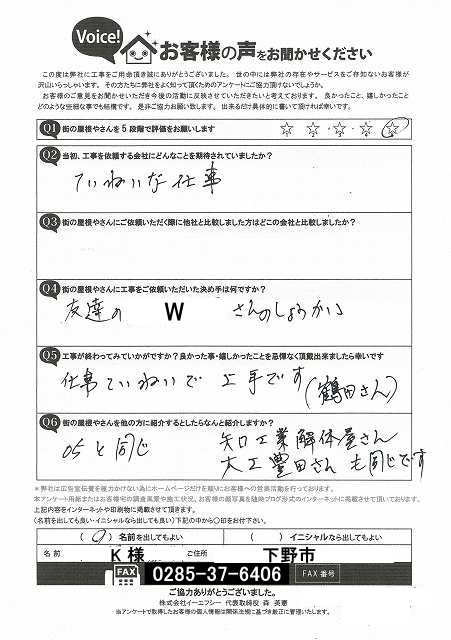 Voice!
お客様の声をお聞かせください
この度は弊社に工事をご用命頂き誠にありがとうございました。世の中には弊社の存在やサービスをご存知ないお客様が
沢山いらっしゃいます。その方たちに弊社をよく知って頂くためのアンケートにご協力頂けないでしょうか。
お客様のご意見をお聞かせいただき今後の活動に反映させていただきたいと考えております。良かったこと、嬉しかったこと
どのような些細な事でも結構です。是非ご協力お願い致します。出来るだけ具体的に書いて頂ければ幸いです。
Q1 街の屋根やさんを5段階で評価をお願いします ☆ ☆ ☆ ☆ ☆
Q2 当初、工事を依頼する会社にどんなことを期待されていましたか?
ていねいな仕事
Q3 街の屋根やさんにご依頼いただく際に他社と比較しました方はどこの会社と比較しましたか?
Q4 街の屋根やさんに工事をご依頼いただいた決め手は何ですか?
友達の W さんのしょうかい
Q5 工事が終わってみていかがですか?良かった事・嬉しかったことを忌憚なく頂戴出来ましたら幸いです
仕事ていねいで 上手です(鶴田さん)
Q6 街の屋根やさんを他の方に紹介するとしたらなんと紹介しますか?
Q5と同じ 矢口工業解体屋さん
大工豊田さんも同じです
※弊社は広告宣伝費を極力かけない為にホームページだけを頼りにお客様への営業活動を行っております。
本アンケート用紙またはお客様宅の調査風景や施工状況、お客様の顔写真を随時ブログ形式のインターネットに掲載させて頂いております。
上記内容をインターネットや印刷物に掲載させて頂きます。
(名前を出しても良い・イニシャルなら出しても良い)下記の中から○印をお付け下さい。
( ○ )名前を出してもよい ( )イニシャルなら出してもよい
名前 K 様 ご住所 下野市
FAX 0285-37-6406 FAX番号
ご協力ありがとうございました。
株式会社イーエフシー 代表取締役 森 英憲
当アンケートで取得したお客様の個人情報は関係法令に基づき厳正に管理いたします。